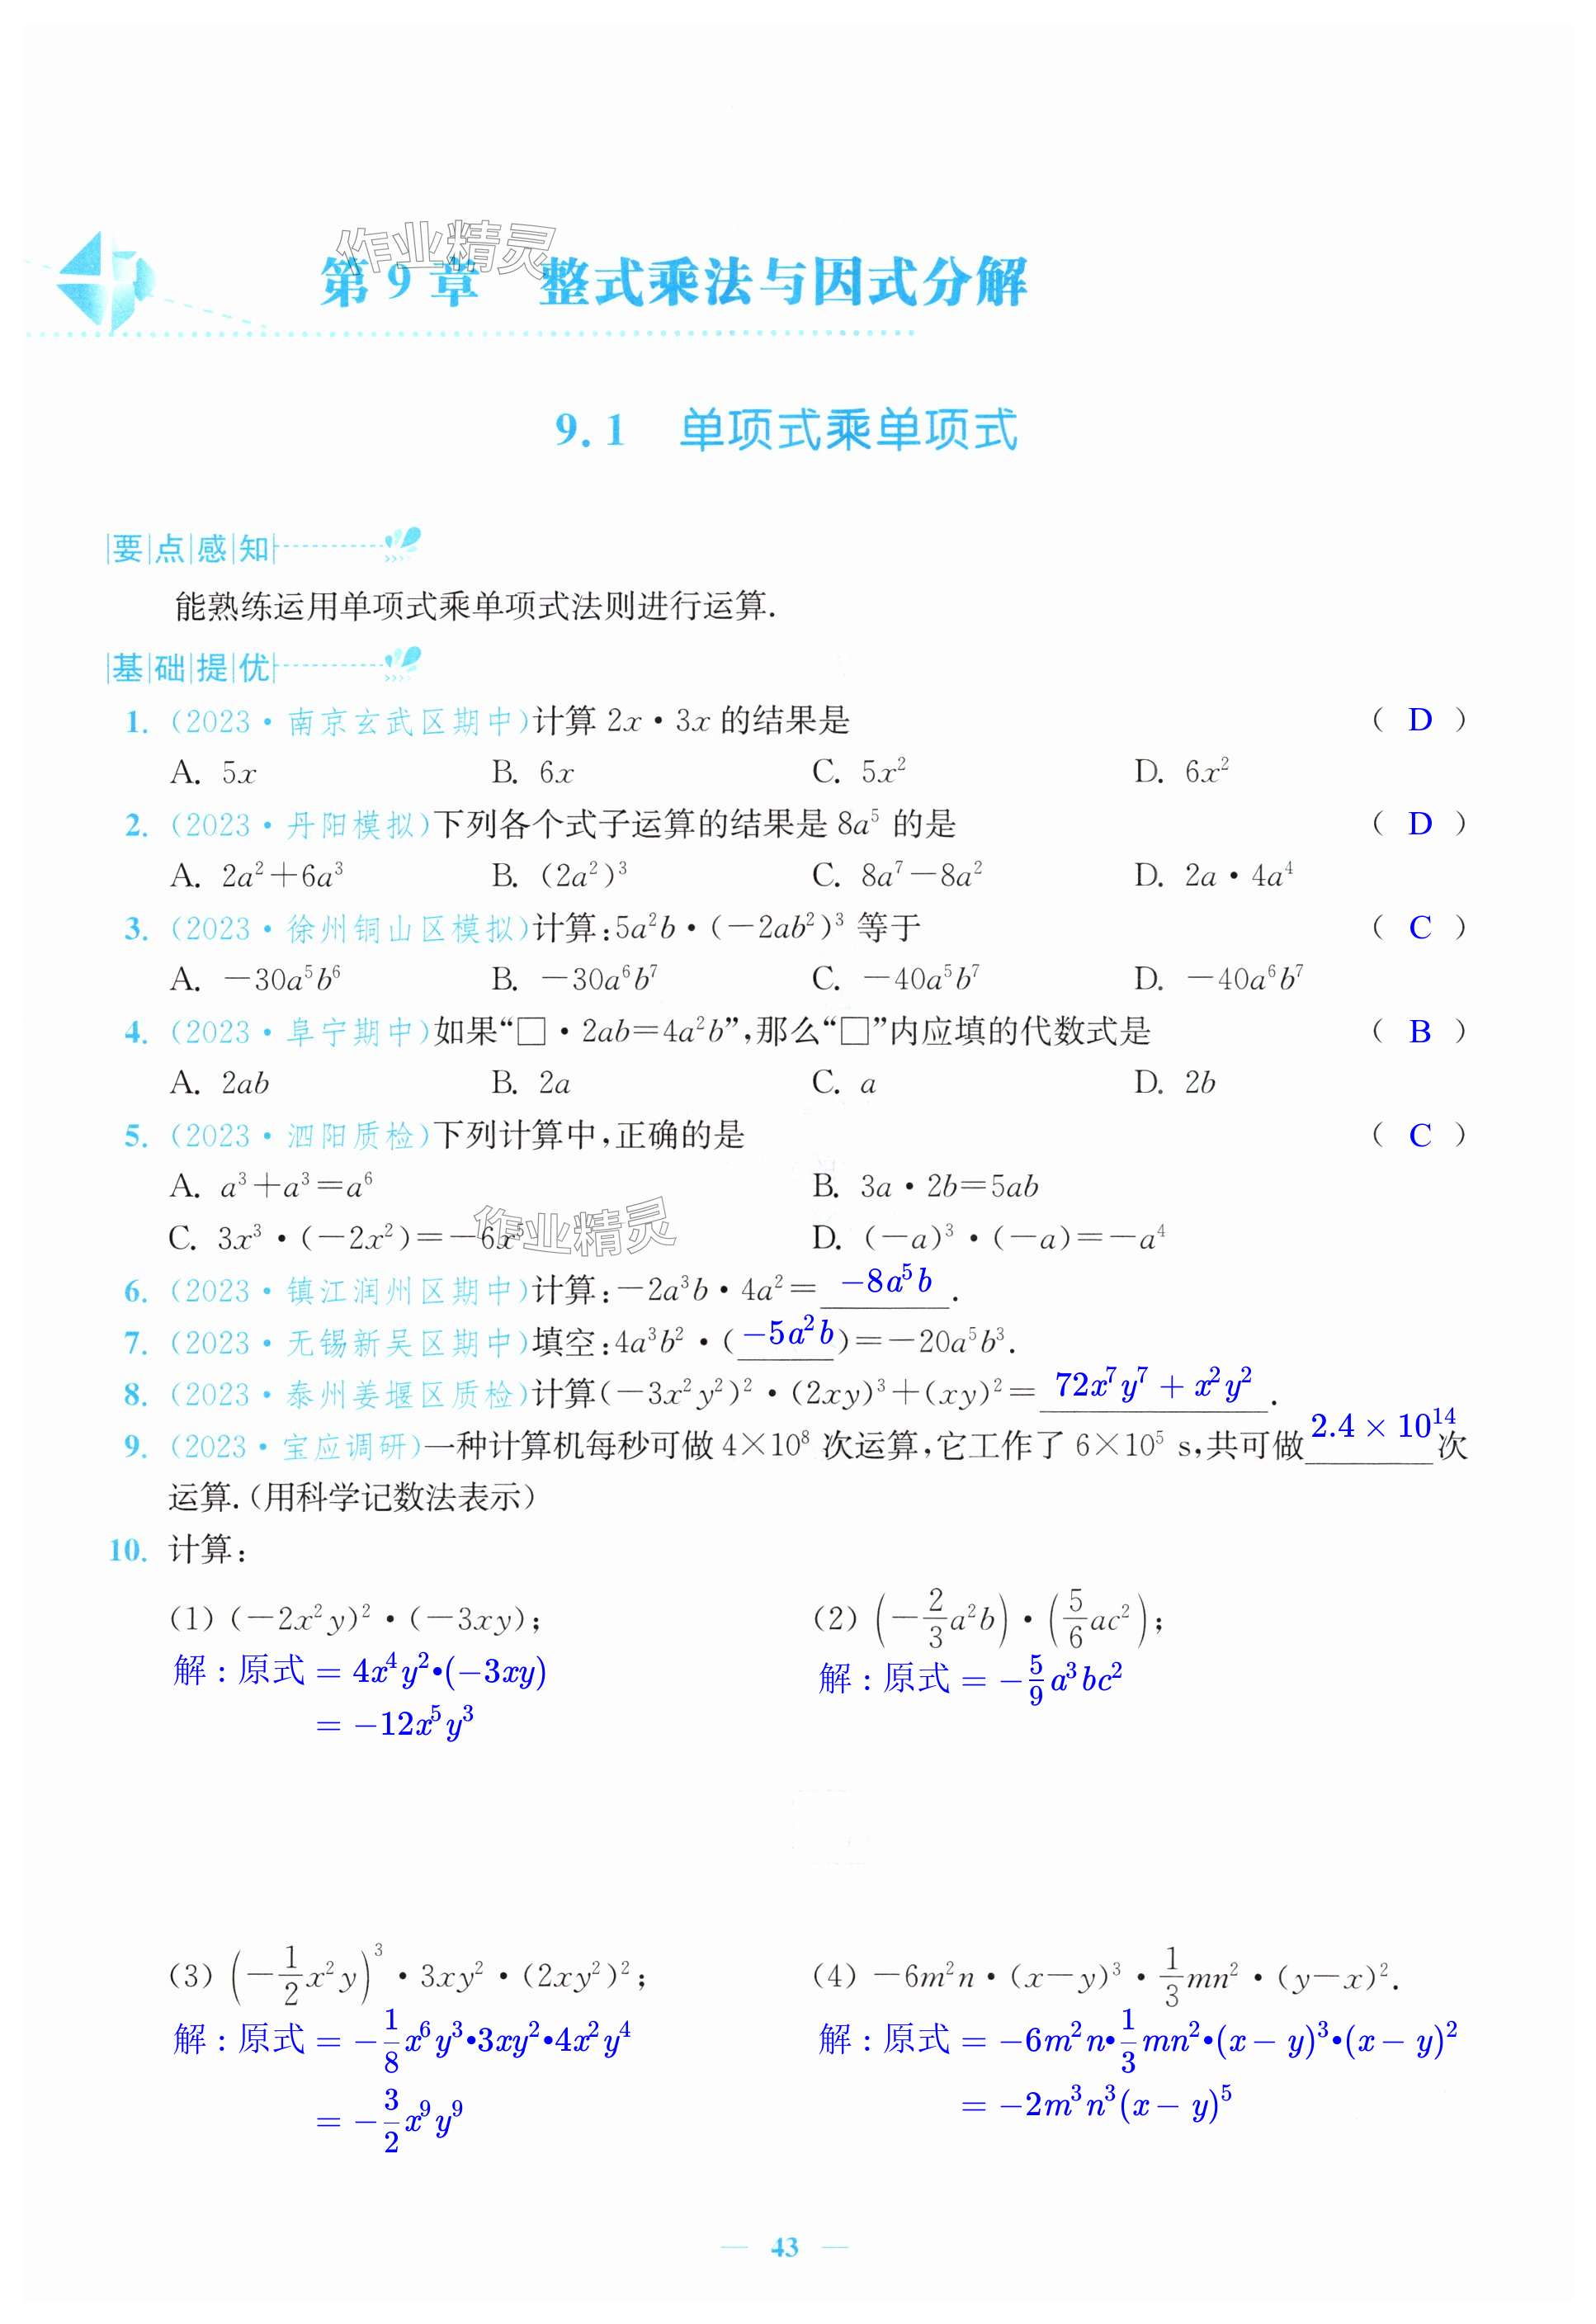 作业精灵
第 9 章 整式乘法与因式分解
9.1 单项式乘单项式
要点感知
能熟练运用单项式乘单项式法则进行运算.
基础提优
1. (2023·南京玄武区期中)计算 2x·3x 的结果是 ( D )
A. 5x B. 6x C. 5x² D. 6x²
2. (2023·丹阳模拟)下列各个式子运算的结果是 8a⁵ 的是 ( D )
A. 2a²+6a³ B. (2a²)³ C. 8a⁷−8a² D. 2a·4a⁴
3. (2023·徐州铜山区模拟)计算:5a²b·(−2ab²)³ 等于 ( C )
A. −30a⁵b⁶ B. −30a⁶b⁷ C. −40a⁵b⁷ D. −40a⁶b⁷
4. (2023·阜宁期中)如果“□·2ab=4a²b”,那么“□”内应填的代数式是 ( B )
A. 2ab B. 2a C. a D. 2b
5. (2023·泗阳质检)下列计算中,正确的是 ( C )
A. a³+a³=a⁶ B. 3a·2b=5ab
C. 3x³·(−2x²)=−6x⁵ D. (−a)³·(−a)=−a⁴
作业精灵
6. (2023·镇江润州区期中)计算:−2a³b·4a²= −8a⁵b .
7. (2023·无锡新吴区期中)填空:4a³b²·( −5a²b )=−20a⁵b³.
8. (2023·泰州姜堰区质检)计算(−3x²y²)²·(2xy)³+(xy)²= 72x⁷y⁷ + x²y² .
9. (2023·宝应调研)一种计算机每秒可做 4×10⁸ 次运算,它工作了 6×10⁵ s,共可做 2.4 × 10¹⁴ 次
运算.(用科学记数法表示)
10. 计算:
(1) (−2x²y)²·(−3xy); (2) (−2/3 a²b)·(5/6 ac²);
解:原式 = 4x⁴y²•(−3xy) 解:原式 = −5/9 a³bc²
= −12x⁵y³
(3) (−1/2 x²y)³·3xy²·(2xy²)²; (4) −6m²n·(x−y)³·1/3 mn²·(y−x)².
解:原式 = −1/8 x⁶y³•3xy²•4x²y⁴ 解:原式 = −6m²n•1/3 mn²•(x − y)³•(x − y)²
= −3/2 x⁹y⁹ = −2m³n³(x − y)⁵
— 43 —